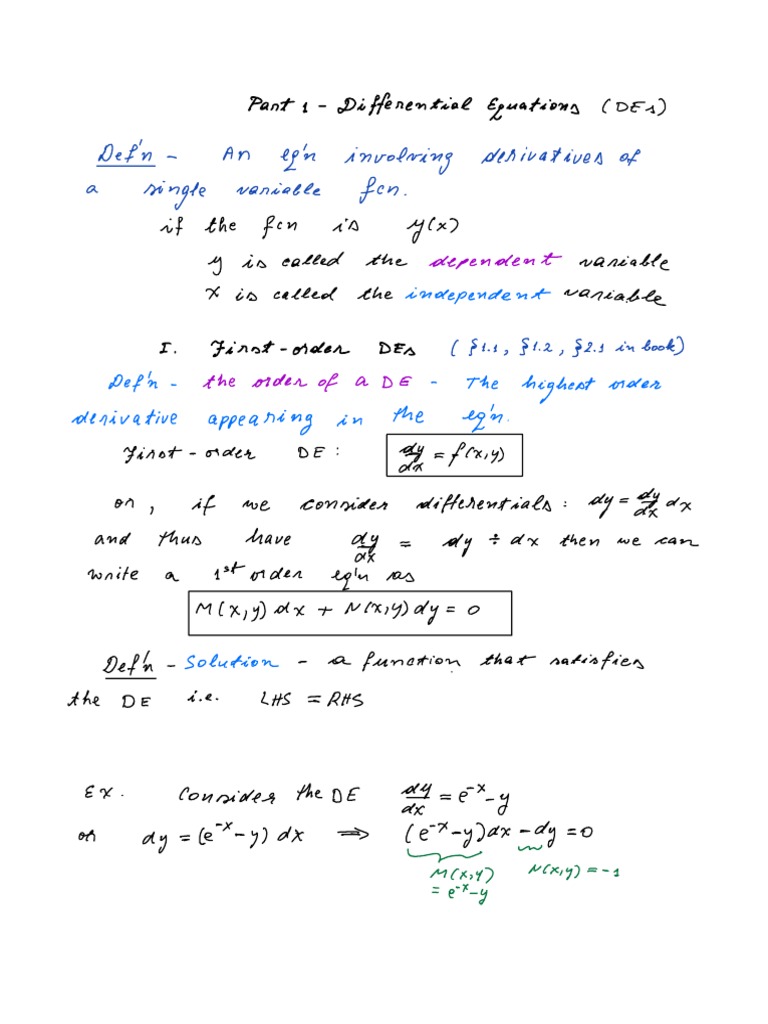 Part 1 - Differential Equations (DEs)
Def'n - An eq'n involving derivatives of
a single variable fcn.
if the fcn is y(x)
y is called the dependent variable
x is called the independent variable
I. First-order DEs (§1.1, §1.2, §2.1 in book)
Def'n - the order of a DE - The highest order
derivative appearing in the eq'n.
First-order DE: dy/dx = f(x,y)
or, if we consider differentials: dy = dy/dx dx
and thus have dy/dx = dy ÷ dx then we can
write a 1st order eq'n as
M(x,y) dx + N(x,y) dy = 0
Def'n - Solution - a function that satisfies
the DE i.e. LHS = RHS
Ex. Consider the DE dy/dx = e^-x - y
or dy = (e^-x - y) dx ⟹ (e^-x - y) dx - dy = 0
M(x,y) N(x,y) = -1
= e^-x - y